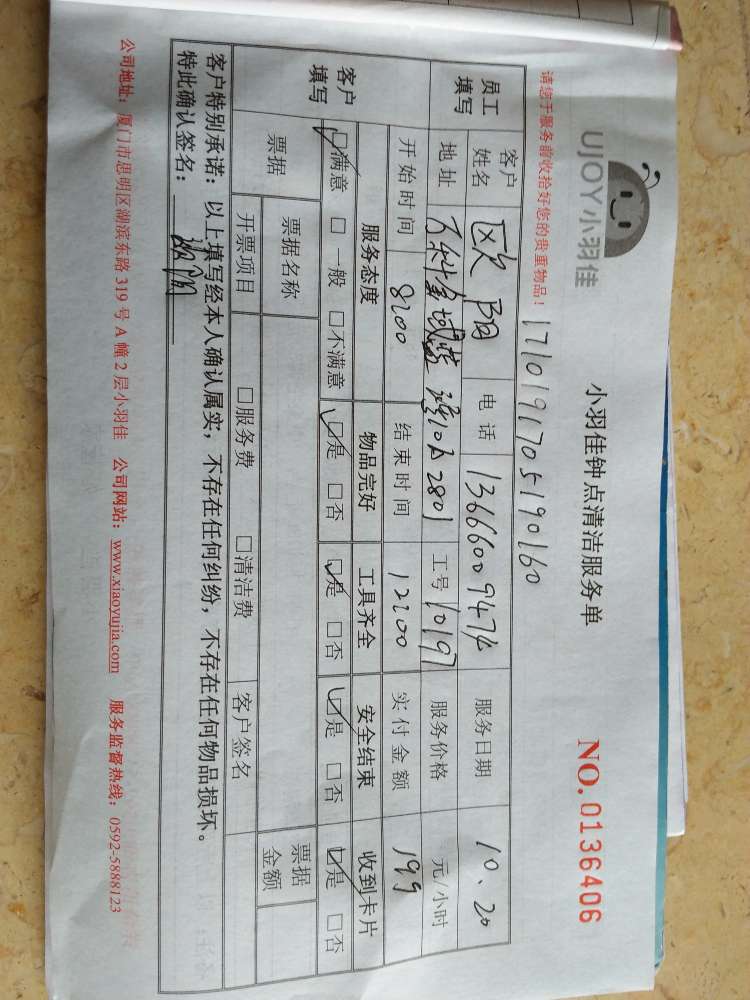 UJOY小羽佳
小羽佳钟点清洁服务单
NO. 0136406
请您于服务前收拾好您的贵重物品！
17101917051901 60
员工填写
客户姓名 欧阳 电话 13666009474 服务日期 10.20
地址 万科金域蓝湾10A2801 工号 10197 服务价格 元/小时
开始时间 8:00 结束时间 12:00 实付金额 199
客户填写
服务态度 物品完好 工具齐全 安全结束 收到卡片
☑满意 □一般 □不满意 ☑是 □否 ☑是 □否 ☑是 □否 ☑是 □否
票据 票据名称 票据金额
开票项目 □服务费 □清洁费 客户签名
客户特别承诺：以上填写经本人确认属实，不存在任何纠纷，不存在任何物品损坏。
特此确认签名：
公司地址：厦门市思明区湖滨东路 319 号 A 幢 2 层小羽佳 公司网站：www.xiaoyujia.com 服务监督热线：0592-5888123